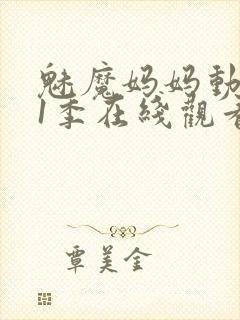 魅魔妈妈動
1季在綫觀看
覃美金